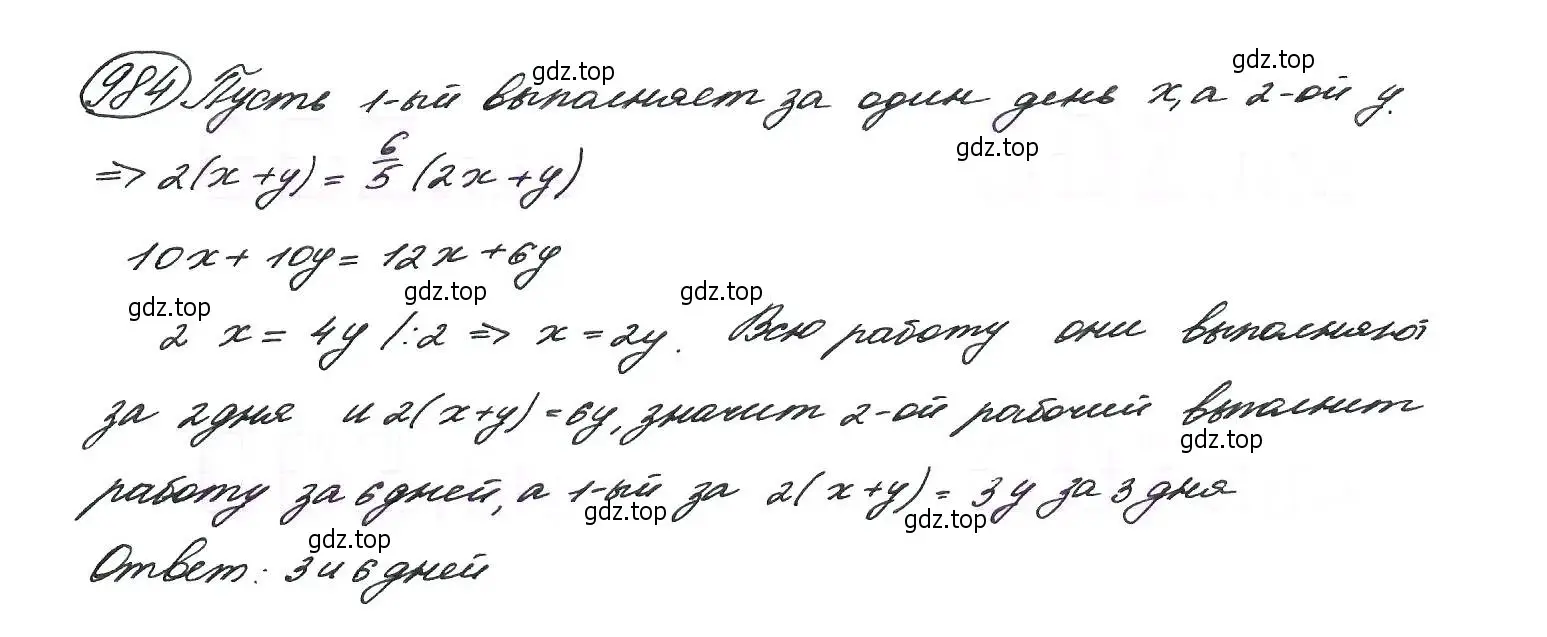 984 Пусть 1-ый выполняет за один день x, а 2-ой y.
=> 2(x+y) = 6/5 (2x+y)
10x + 10y = 12x + 6y
2 x = 4y /:2 => x = 2y. Всю работу они выполняют
за 2дня и 2(x+y)=6y, значит 2-ой рабочий выполнит
работу за 6 дней, а 1-ый за 2(x+y) = 3y за 3 дня
Ответ: 3 и 6 дней
gdz.top
gdz.top
gdz.top
gdz.top
gdz.top
gdz.top
gdz.top
gdz.top
gdz.top
gdz.top